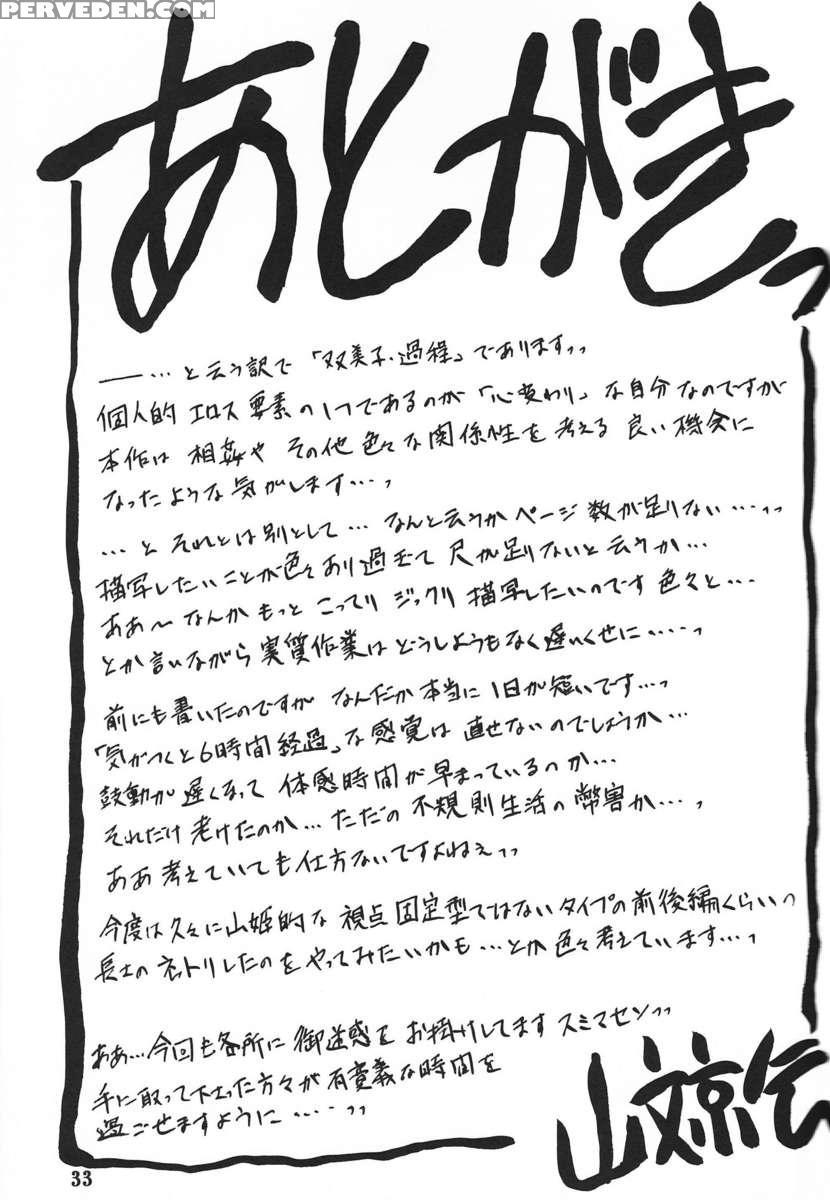 PERVEDEN.COM
あとがきっ
――…と云う訳で「双美子・過程」でありますッ
個人的エロス要素の1つであるのが「心変わり」な自分なのですが
本作は相姦やその他色々な関係性を考える良い機会に
なったような気がします…っ
…とそれとは別として…なんと云うかページ数が足りない…ッ
描写したいことが色々あり過ぎて尺が足りないと云うか…
ああ〜なんかもっとこってりジックリ描写したいのです色々と…
とか言いながら実質作業はどうしようもなく遅いくせに……っ
前にも書いたのですがなんだか本当に1日が短いです…っ
「気がつくと6時間経過」な感覚は直せないのでしょうか…
鼓動が遅くなって体感時間が早まっているのか…
それだけ老けたのか…ただの不規則生活の幣害か…っ
ああ考えていても仕方ないですよねぇッ
今度は久々に山姫的な視点固定型ではないタイプの前後編くらいっ
長士のネットリしたのをやってみたいかも…とか色々考えています…っ
ああ…今回も各所に御迷惑をお掛けしてますスミマセンッ
手に取って下さった方々が有意義な時間を
過ごせますように……ッ
山文京伝
33